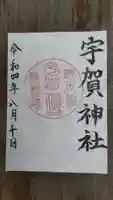 宇賀神社
令和四年八月十日